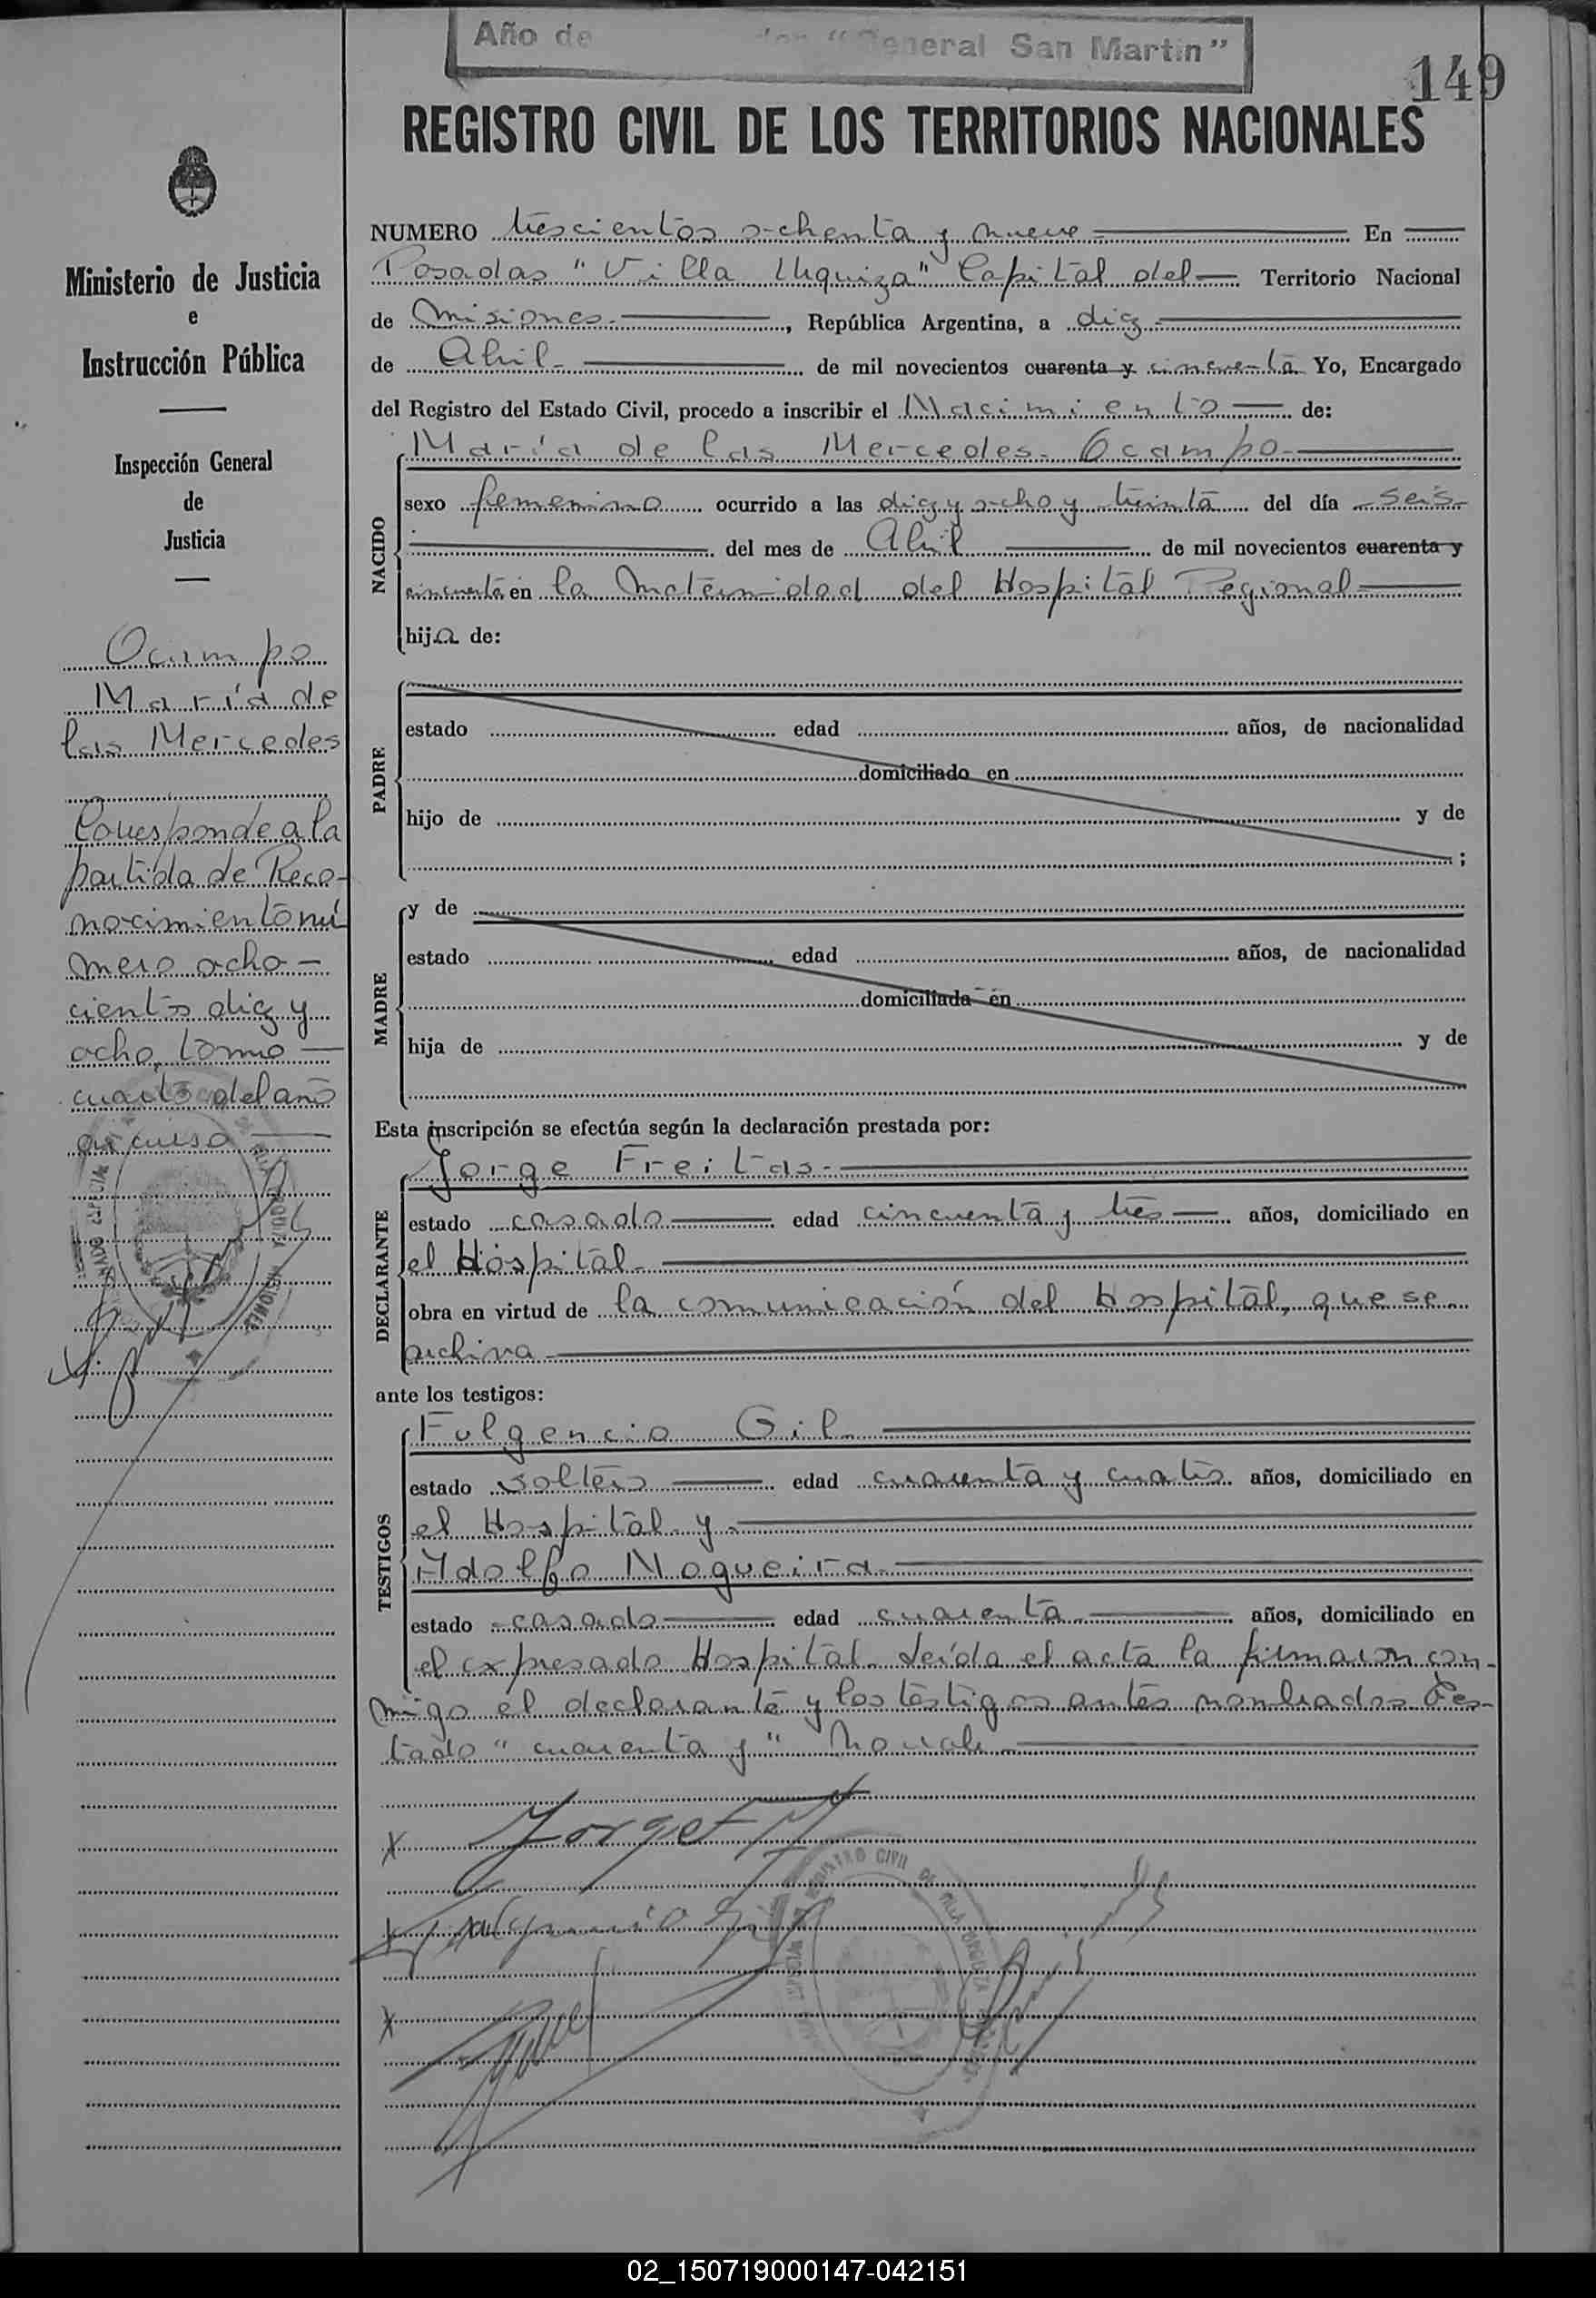 Año de "General San Martín"
149
REGISTRO CIVIL DE LOS TERRITORIOS NACIONALES
Ministerio de Justicia
e
Instrucción Pública
Inspección General
de
Justicia
Ocampo
María de
las Mercedes
Corresponde a la
partida de Reco-
nocimiento nú
mero ocho-
cientos diez y
ocho, tomo
cuarto del año
en curso
NUMERO trescientos ochenta y nueve En
Posadas "Villa Urquiza" Capital del Territorio Nacional
de Misiones, República Argentina, a diez
de Abril de mil novecientos cuarenta y cincuenta Yo, Encargado
del Registro del Estado Civil, procedo a inscribir el Nacimiento de:
NACIDO
María de las Mercedes Ocampo
sexo femenino ocurrido a las diez y ocho y treinta del día seis
del mes de Abril de mil novecientos cuarenta y
cincuenta en la Maternidad del Hospital Regional
hija de:
PADRE
estado edad años, de nacionalidad
domiciliado en
hijo de y de
;
MADRE
y de
estado edad años, de nacionalidad
domiciliada en
hija de y de
Esta inscripción se efectúa según la declaración prestada por:
DECLARANTE
Jorge Freitas
estado casado edad cincuenta y tres años, domiciliado en
el Hospital
obra en virtud de la comunicación del Hospital, que se
archiva
ante los testigos:
TESTIGOS
Fulgencio Gil
estado soltero edad cuarenta y cuatro años, domiciliado en
el Hospital y
Adolfo Nogueira
estado casado edad cuarenta años, domiciliado en
el expresado Hospital. Leída el acta la firmaron con-
migo el declarante y los testigos antes nombrados. Tes-
tado "cuarenta y" No vale
Jorge F
Fulgencio Gil
REGISTRO CIVIL DE VILLA URQUIZA
02_150719000147-042151